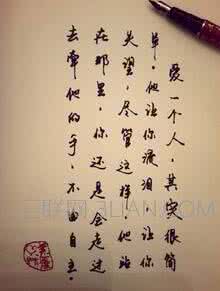 爱一个人，其实很简
单，他让你流泪，让你
失望，尽管这样，他站
在那里，你还是会走过
去牵他的手，不由自主。
三联网 3LIAN.COM